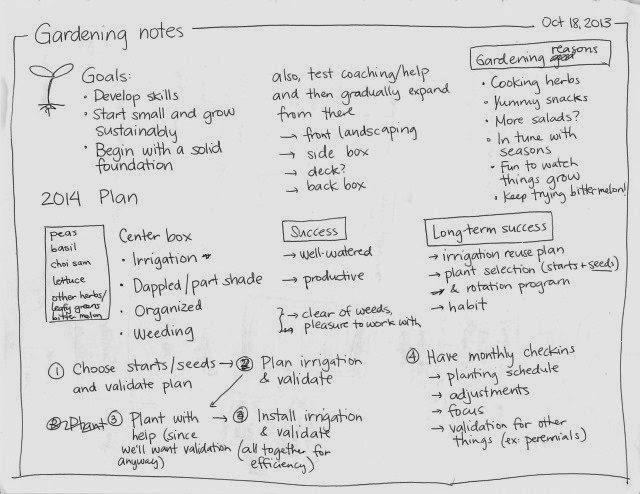 Gardening notes
Oct 18, 2013
Goals:
• Develop skills
• Start small and grow
sustainably
• Begin with a solid
foundation
also, test coaching/help
and then gradually expand
from there
→ front landscaping
→ side box
→ deck?
→ back box
Gardening reasons
• Cooking herbs
• Yummy snacks
• More salads?
• In tune with
seasons
• Fun to watch
things grow
• Keep trying bitter melon!
2014 Plan
peas
basil
choi sam
lettuce
other herbs/
leafy greens
bitter melon
Center box
• Irrigation
• Dappled/part shade
• Organized
• Weeding
Success
→ well-watered
→ productive
→ clear of weeds,
pleasure to work with
Long-term success
→ irrigation reuse plan
→ plant selection (starts + seeds)
& rotation program
→ habit
① Choose starts/seeds →
and validate plan
② Plan irrigation
& validate
③ Plant with →
help (since
we'll want validation
anyway)
③ Install irrigation
& validate
(all together for
efficiency)
④ Have monthly checkins
→ planting schedule
→ adjustments
→ focus
→ validation for other
things (ex: perennials)